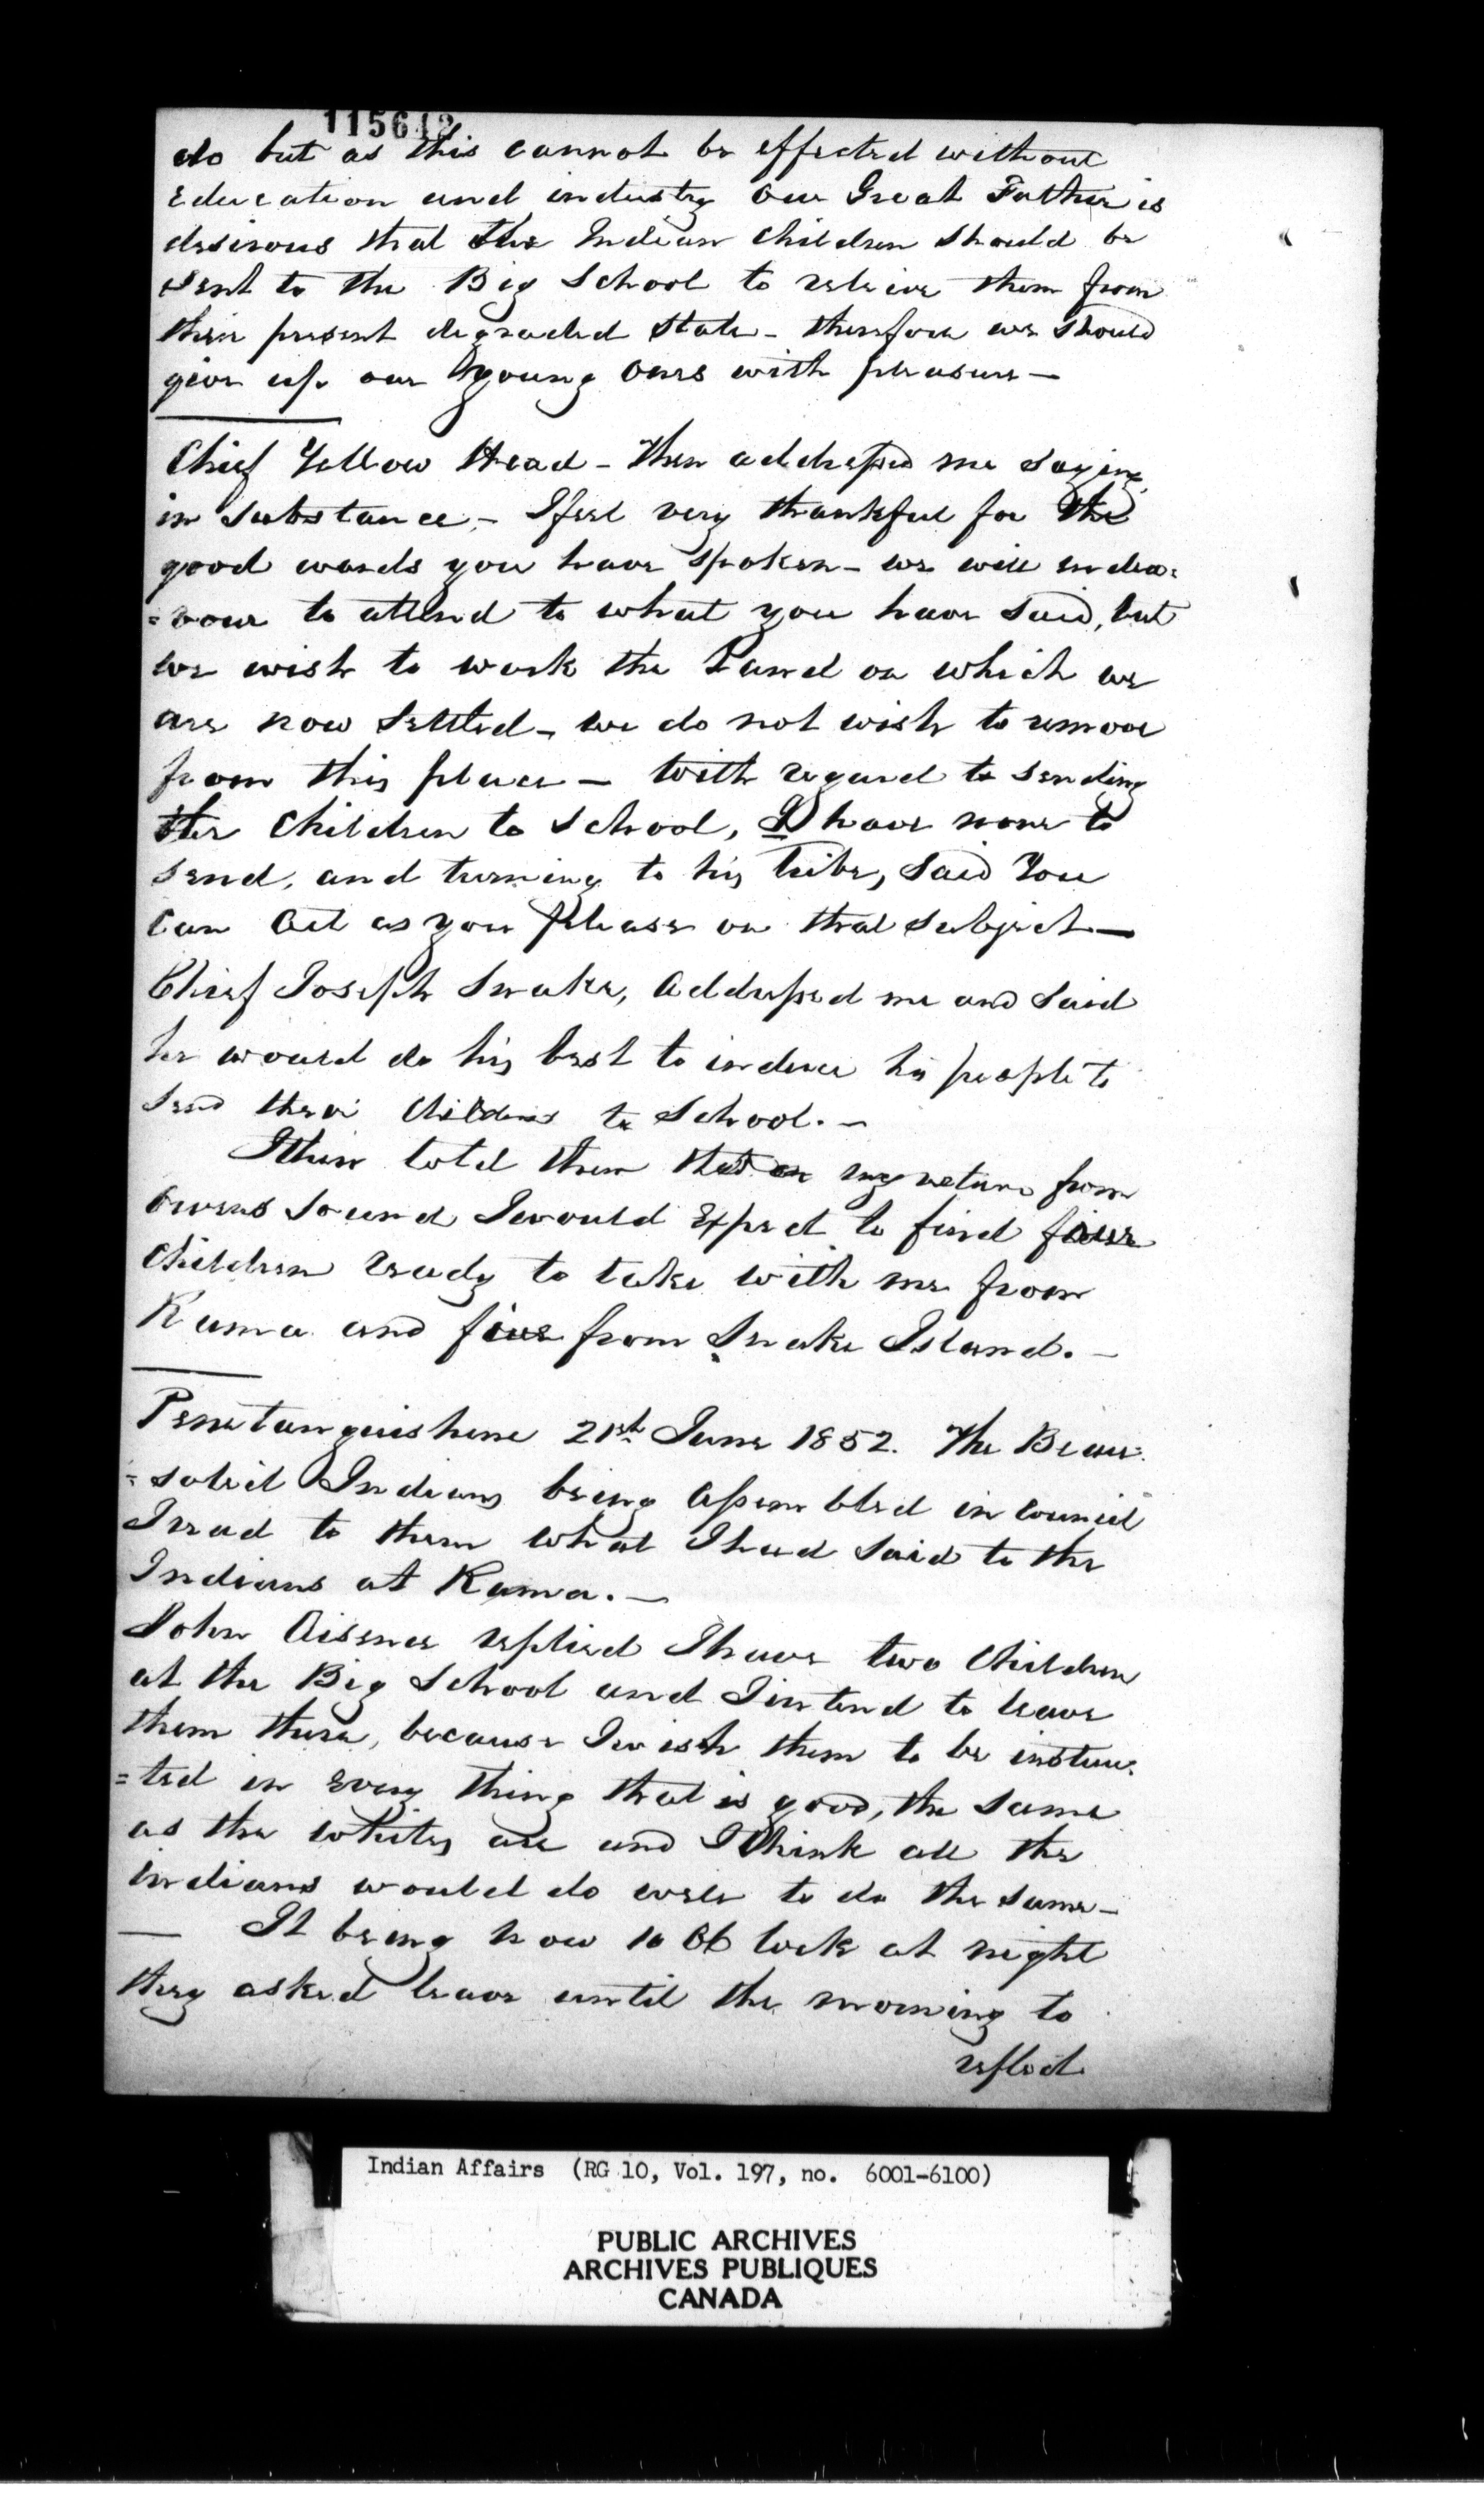 115642
do but as this cannot be effected without
Education and industry our Great Father is
desirous that the Indian Children should be
sent to the Big School to releive them from
their present degraded state - therefore we should
give up our young ones with pleasure —
Chief Yellow Head - then addressed me saying
in substance, - I feel very thankful for the
good words you have spoken - we will endea=
=vour to attend to what you have said, but
we wish to work the Land on which we
are now settled - we do not wish to remove
from this place — With regard to sending
the Children to School, I have none to
send, and turning to his tribe, said You
can act as you please on that subject —
Chief Joseph Snake, addressed me and said
he would do his best to induce his people to
send their Childrens to School. -
I then told them that on my return from
Owens Sound I would expect to find five
Children ready to take with me from
Rama and five from Snake Island. -
Penetanguishene 21st June 1852. The Beau=
=soleil Indians being assembled in Council
I read to them what I had said to the
Indians at Rama. —
John Aisence replied I have two Children
at the Big School and I intend to leave
them there, because I wish them to be instruc=
=ted in every thing that is good, the same
as the whites are and I think all the
indians would do well to do the same -
— It being now 10 OClock at night
they asked leave until the morning to
reflect
Indian Affairs (RG 10, Vol. 197, no. 6001-6100)
PUBLIC ARCHIVES
ARCHIVES PUBLIQUES
CANADA